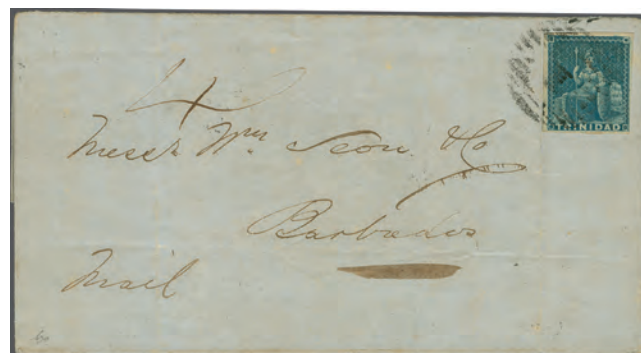 TRINIDAD
4
Messrs Wm & Co
Barbados
Mail